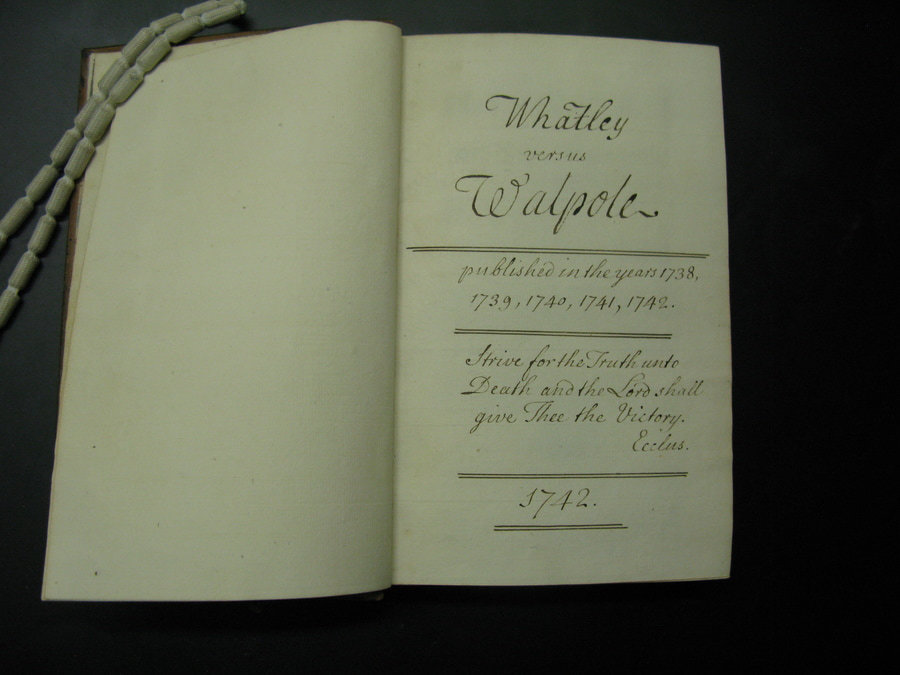 Whatley
versus
Walpole
published in the years 1738,
1739, 1740, 1741, 1742.
Strive for the Truth unto
Death and the Lord shall
give Thee the Victory.
Ecclus.
1742.